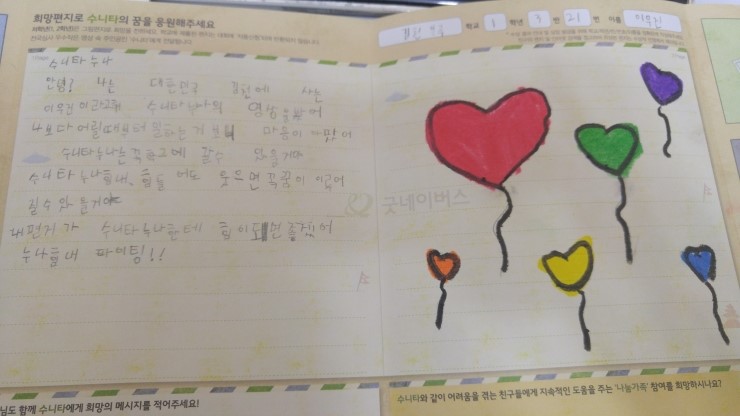 희망편지로 수니타의 꿈을 응원해주세요
학교 1 학년 3 반 21 번 이름
수니타 누나
안녕? 나는 대한민국 김천에 사는
이라고해 수니타누나의 영상을봤어
나보다 어릴때부터 일하는거 보니 마음이 아팠어
수니타누나는 꼭 학교에 갈수 있을거야
수니타 누나힘내, 힘들어도 웃으면 꼭꿈이 이루어
질수 있을거야
내편지가 수니타누나한테 힘이되면 좋겠어
누나힘내 파이팅!!
굿네이버스
님도 함께 수니타에게 희망의 메시지를 적어주세요!
수니타와 같이 어려움을 겪는 친구들에게 지속적인 도움을 주는 '나눔가족' 참여를 희망하시나요?